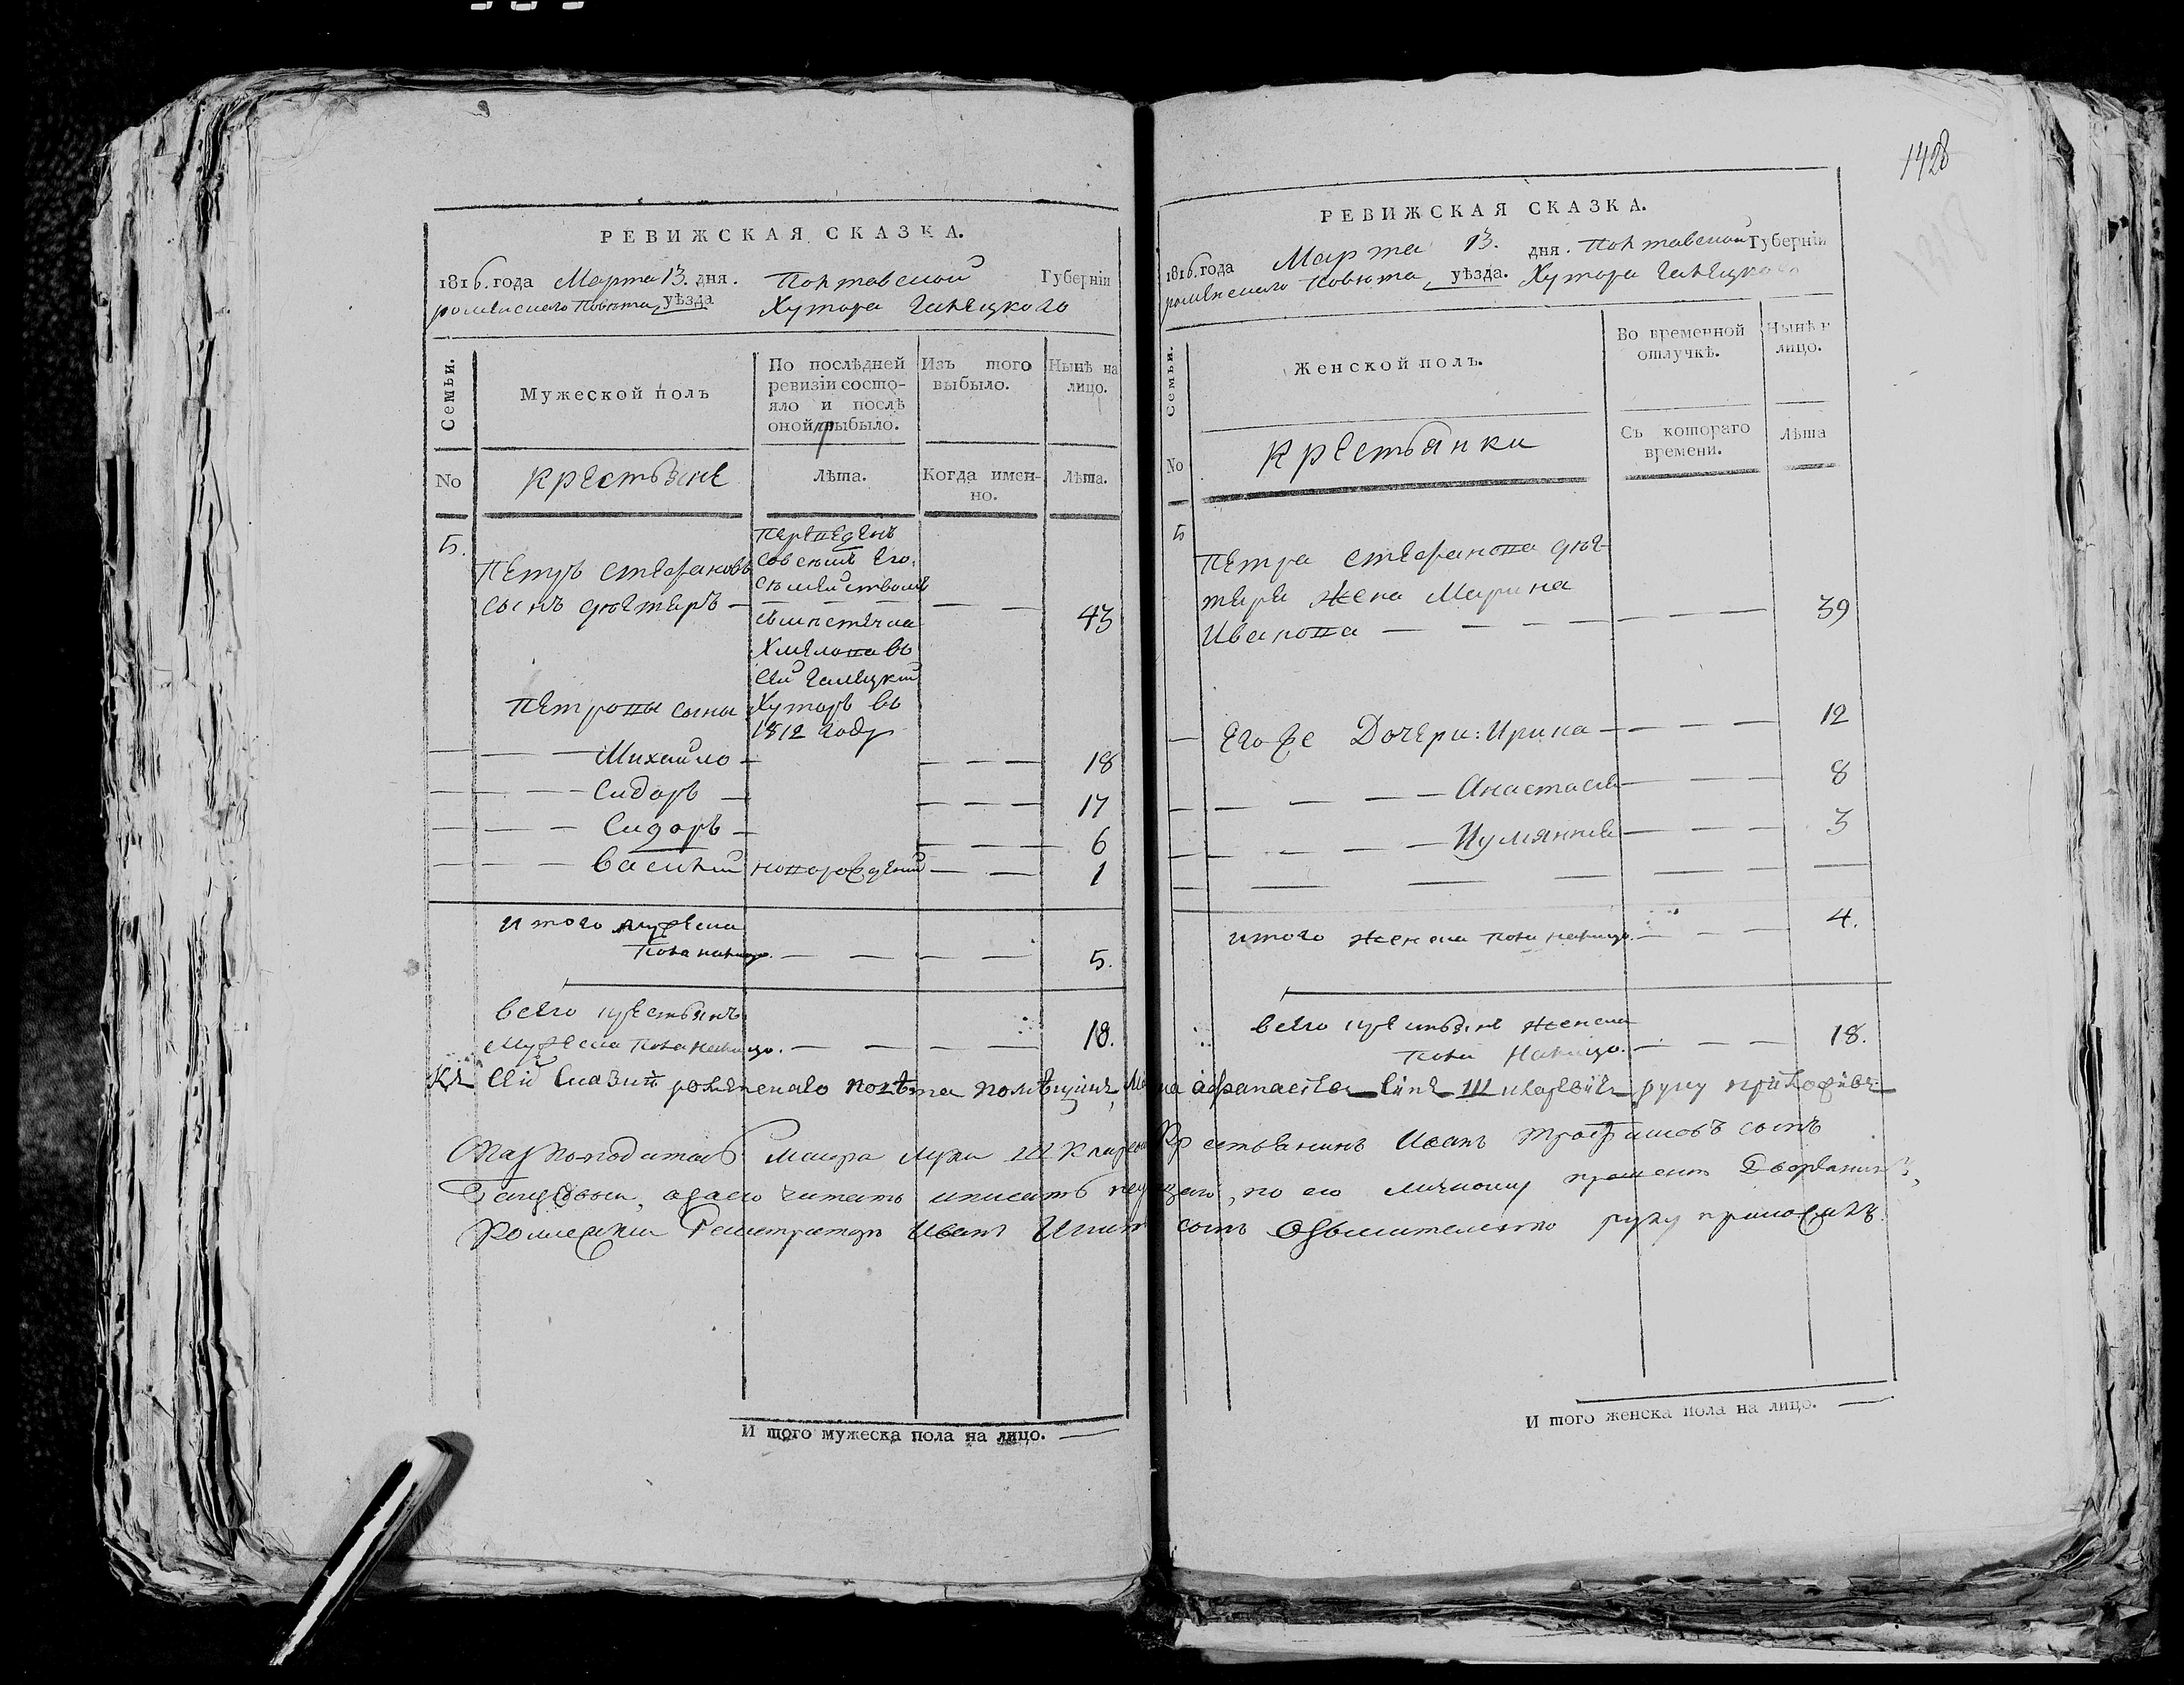 1428
РЕВИЖСКАЯ СКАЗКА.
1816. года Марта 13. дня. Полтавской Губерніи
роменского Повѣта, уѣзда Хутора Галецкого
Семьи.
Мужеской полъ
По послѣдней ревизіи состо-
яло и послѣ
оной прибыло.
Изъ того
выбыло.
Нынѣ на
лицо.
No
крестьяне
лѣта.
Когда имен-
но.
лѣта.
5.
Петръ Стефановъ
сынъ
43
переведенъ
совсемъ его
семействомъ
изместечка
Хмелова во
сей Галецкий
Хуторъ во
1812 году
Петровы сыны
Михайло 18
Сидоръ 17
Сидоръ 6
Василий новорожденний 1
итого мужеска
пола налицо. 5.
всего крестьянъ
мужеска пола налицо. 18.
И того мужеска пола на лицо.
РЕВИЖСКАЯ СКАЗКА.
1816. года Марта 13. дня. Полтавской Губерніи
роменского Повѣта, уѣзда. Хутора Галецкого
Семьи.
Женской полъ.
Во временной
отлучкѣ.
Нынѣ н
лицо.
No
крестьянки
Съ котораго
времени.
лѣта
5
Петра Стефанова
жена Марина
Иванова 39
Его же Дочери: Ирина 12
Анастасия 8
3
итого женска пола налицо. 4.
всего крестьянъ женска
пола налицо. 18.
Къ сей сказки роменскаго повѣта помѣщика руку приложивъ
Маиора Луки Крестьянинъ Иванъ Трофимовъ сынъ
читать иписать по его личному Дворянинъ,
Регистраторъ Иванъ сынъ руку приложилъ.
И того женска пола на лицо.